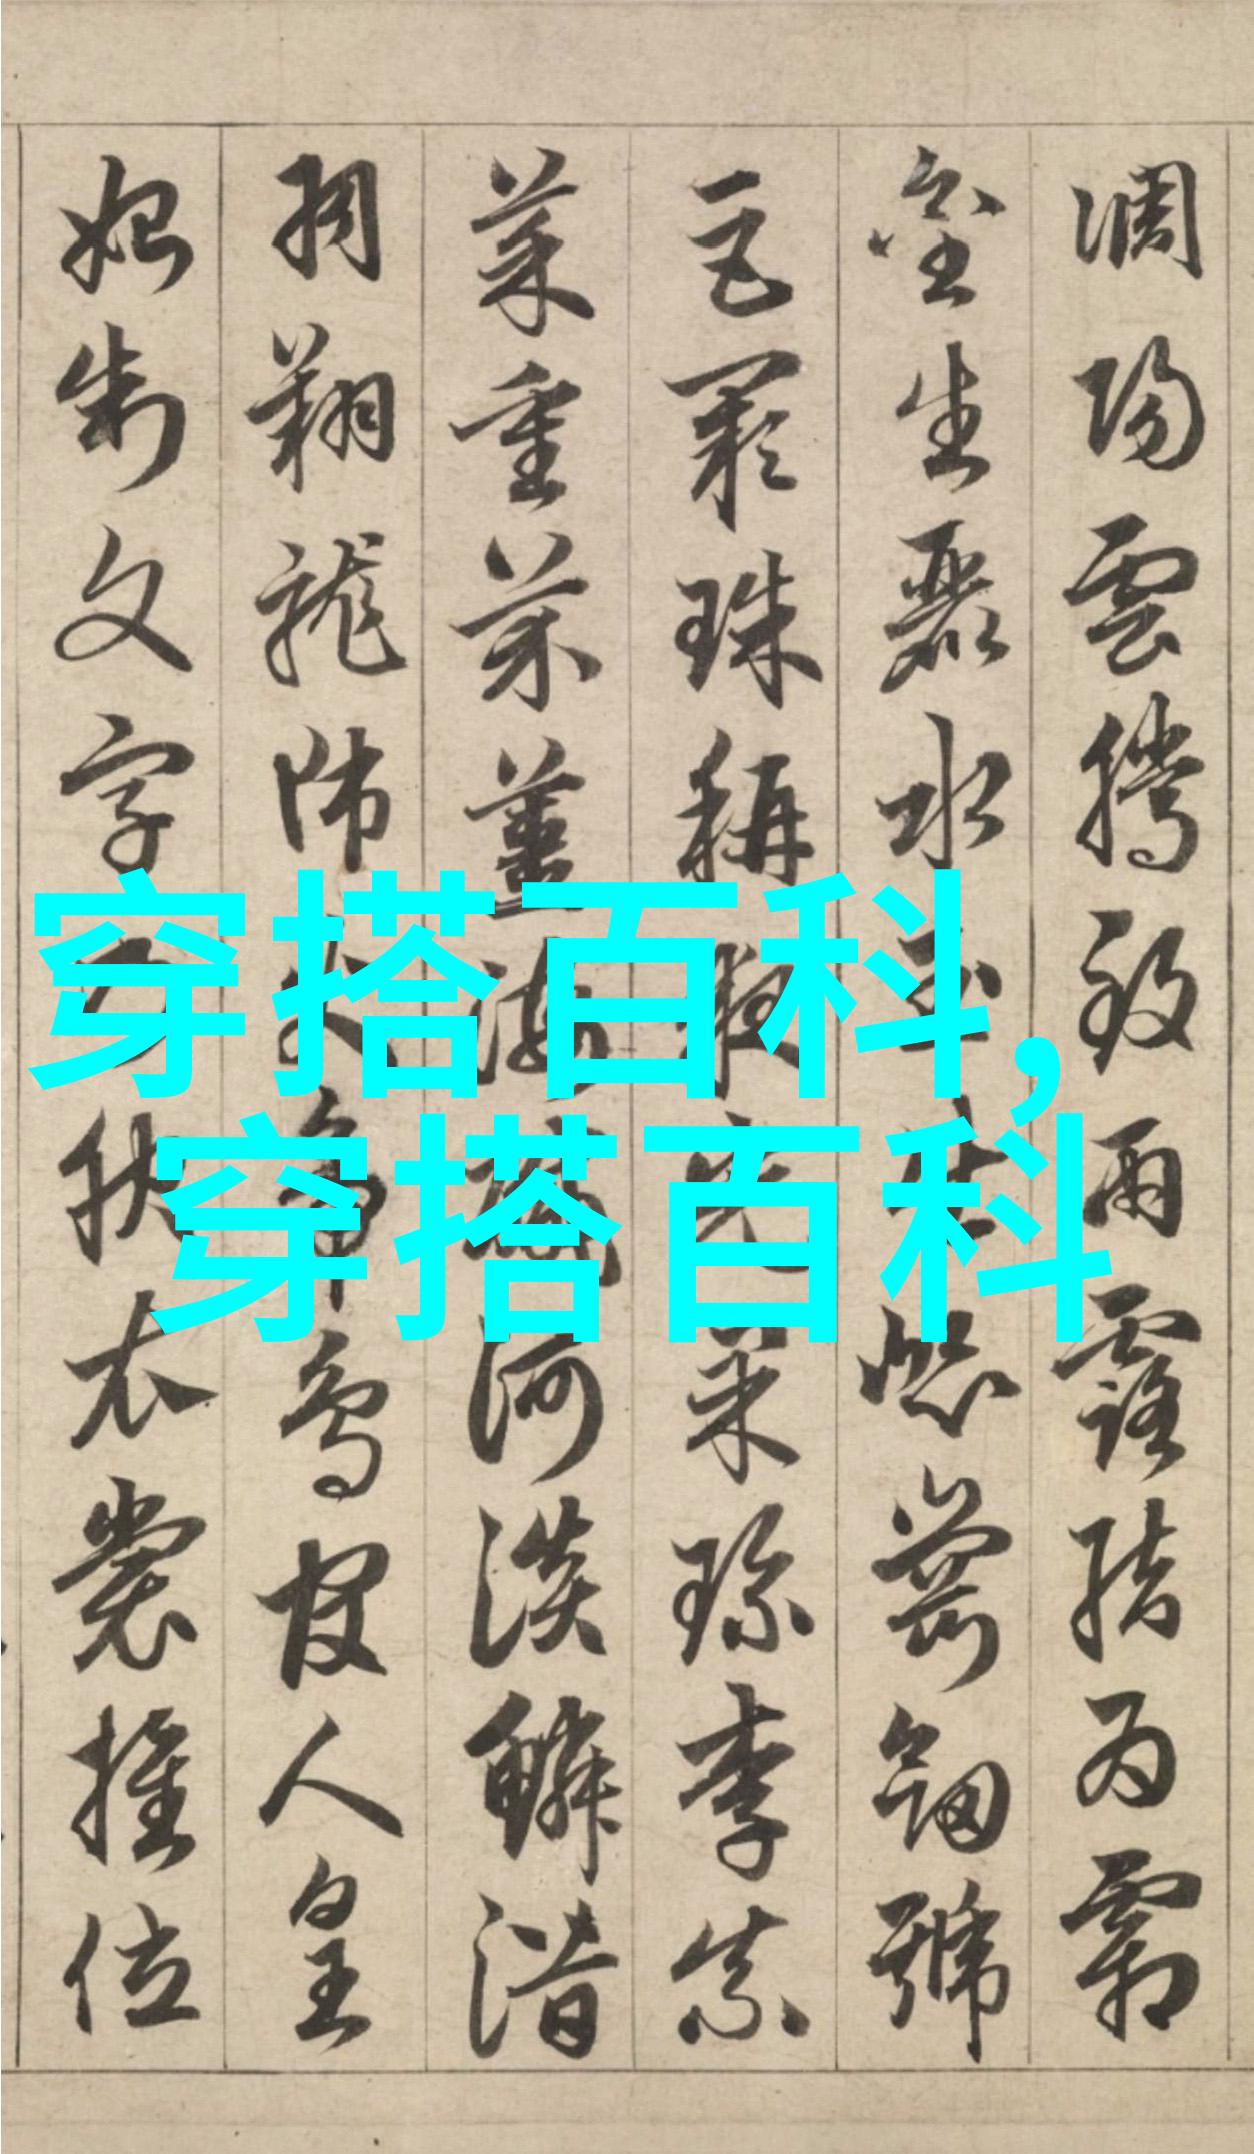 調陽雲騰致雨露結為霜
金生麗水玉出崑崗劍號
巨闕珠稱夜光果珍李柰
菜重芥薑海鹹河淡鱗潛
羽翔龍師火帝鳥官人皇
始制文字乃服衣裳推位
穿搭百科,
穿搭百科